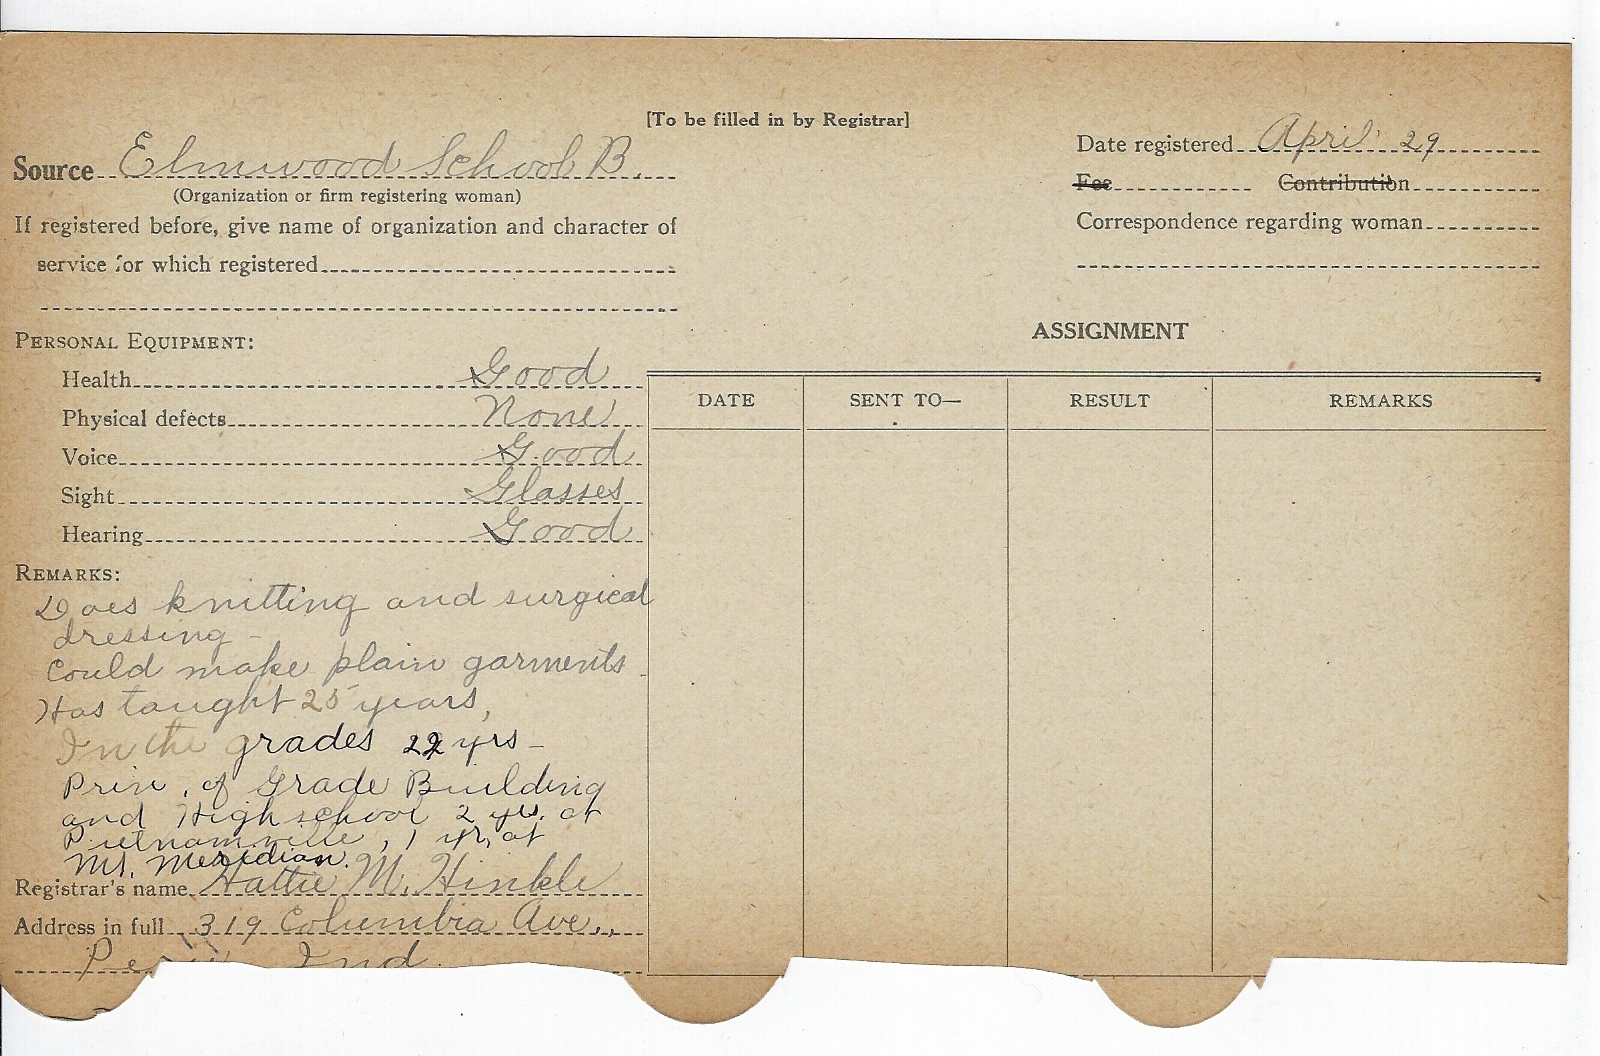 [To be filled in by Registrar]
Source Elmwood School B.
(Organization or firm registering woman)
If registered before, give name of organization and character of
service for which registered
Date registered April 29
Fee Contribution
Correspondence regarding woman
PERSONAL EQUIPMENT:
Health Good
Physical defects None
Voice Good
Sight Glasses
Hearing Good
REMARKS:
Does knitting and surgical
dressing -
Could make plain garments
Has taught 25 years,
In the grades 22 yrs -
Prin. of Grade Building
and High school 2 yrs. at
Putnamville, 1 yr, at
Mt. Meridian.
Registrar's name Hattie M. Hinkle
Address in full 319 Columbia Ave.,
Peru Ind.
ASSIGNMENT
DATE SENT TO— RESULT REMARKS